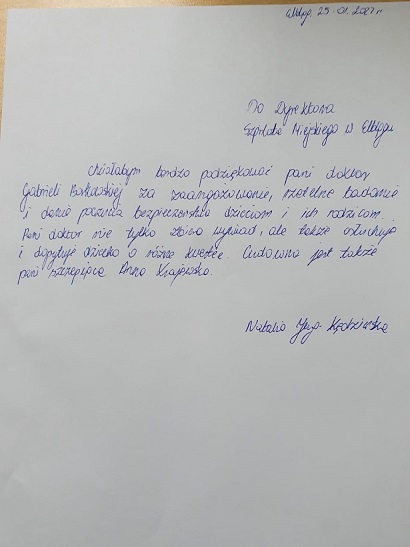 Elbląg, 25-01.2022r
Do Dyrektora
Szpitala Miejskiego w Elblągu
Chciałabym bardzo podziękować pani doktor
Gabrieli za zaangażowanie, rzetelne badanie
i danie poczucia bezpieczeństwa dzieciom i ich rodzicom.
Pani doktor nie tylko zbiera wywiad, ale także osłuchuje
i dopytuje dziecko o różne kwestie. Cudowna jest także
pani szczepiąca Anna Krajewska.
Natalia Kędzierska